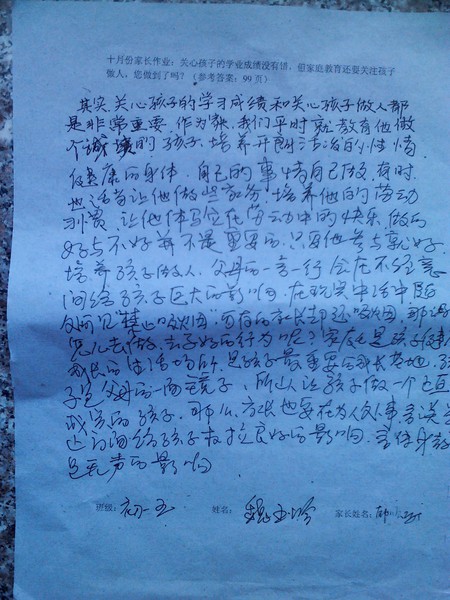 十月份家长作业：关心孩子的学业成绩没有错，但家庭教育还要关注孩子
做人，您做到了吗？（参考答案：99页）
其实关心孩子的学习成绩和关心孩子做人都
是非常重要，作为家长，我们平时就教育他做
个诚实的孩子，培养开朗活泼的性情
健康的身体，自己的事情自己做，有时
也适当让他做些家务，培养他的劳动
习惯，让他体验在劳动中的快乐，做的
好与不好并不是重要的，只要他参与就好。
培养孩子做人，父母的一言一行会在不经意
间给孩子巨大的影响，在现实生活中随
处可见"禁止吸烟"，可有的家长却还吸烟，那
怎么去做孩子好的行为呢？家庭是孩子健康
成长的生活场所，是孩子最重要的成长基地，孩
子是父母的一面镜子，所以让孩子做一个正直
诚实的孩子，那么，家长也要在为人处事
给孩子树立良好的影响，言传身教
是无声的影响
班级：初一五 姓名：魏玉玲 家长姓名：